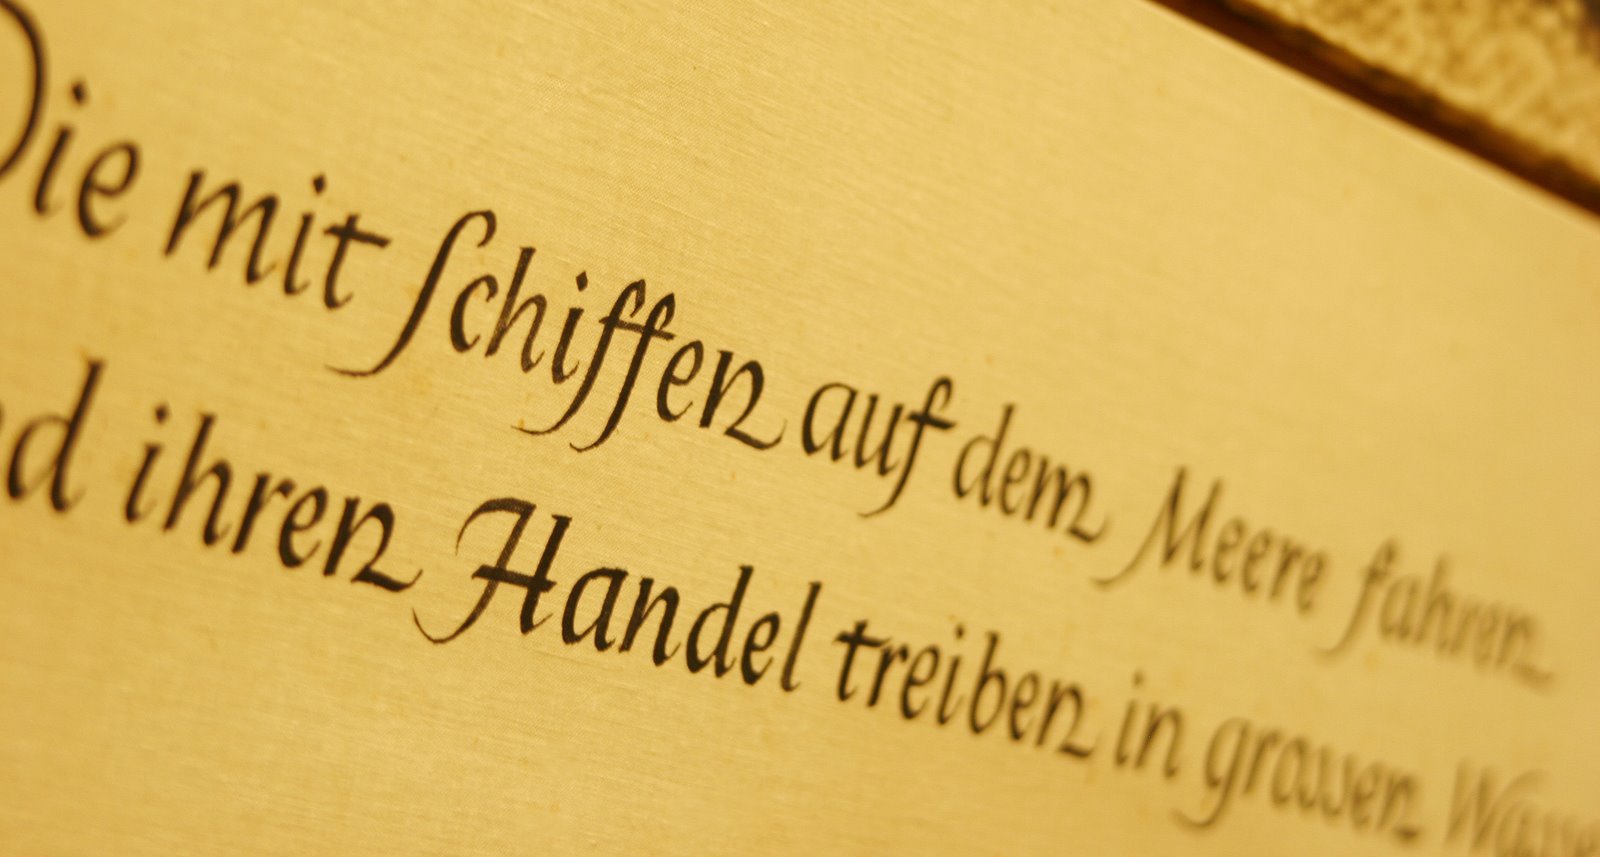 Die mit Schiffen auf dem Meere fahren
nd ihren Handel treiben in grossen Wasse